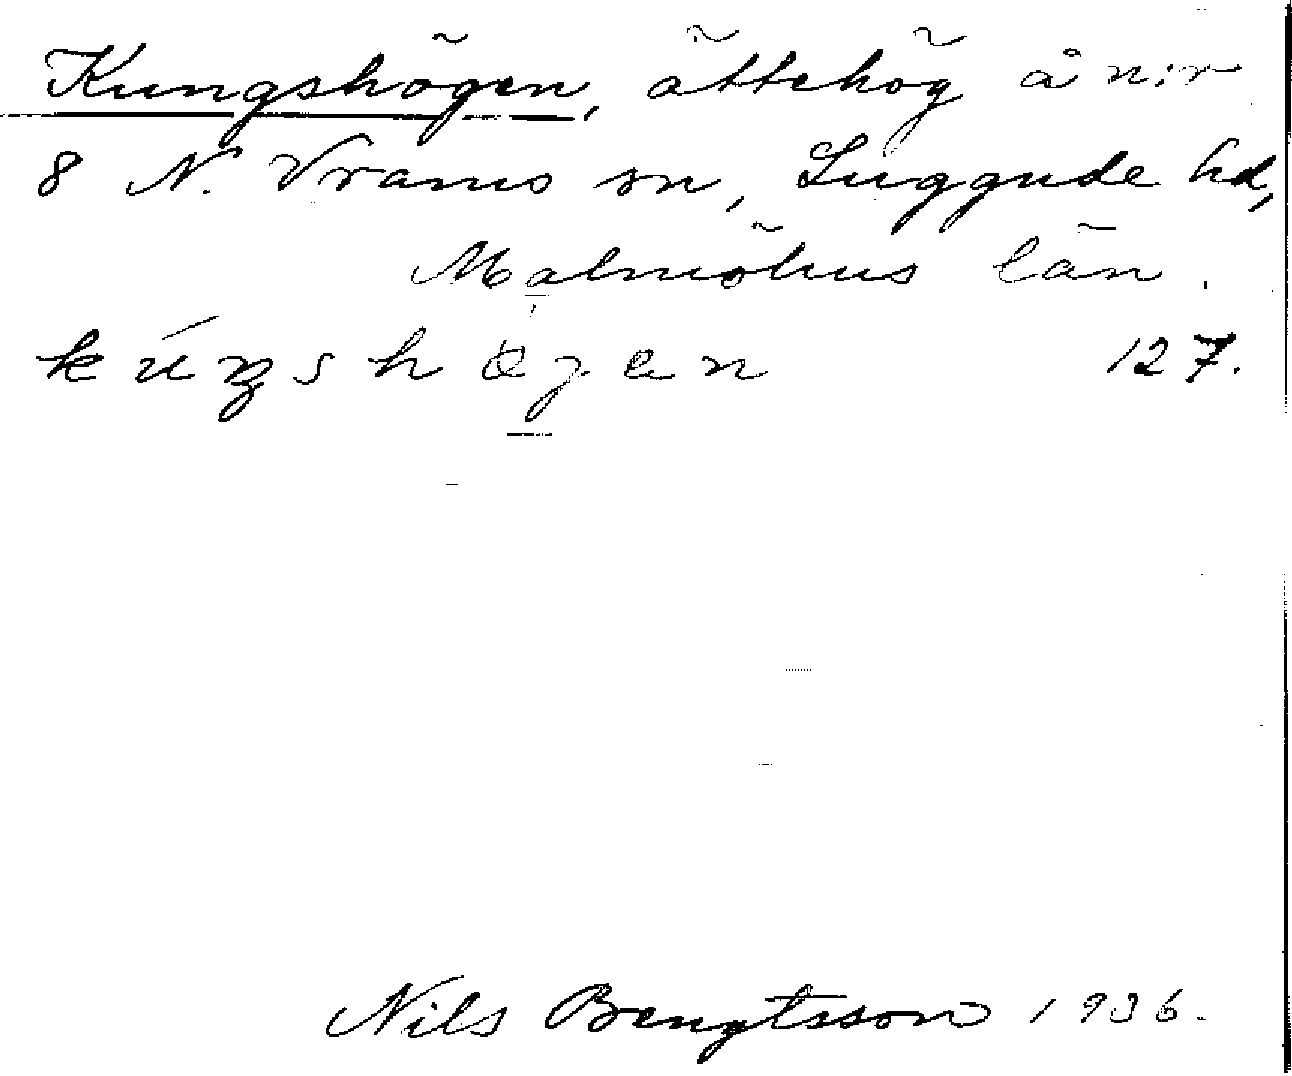 Kungshögen, ättehög å n:r
8 N. Vrams sn, Luggude hd,
Malmöhus län.
kúŋshøgen 127.
Nils Bengtsson 1936.